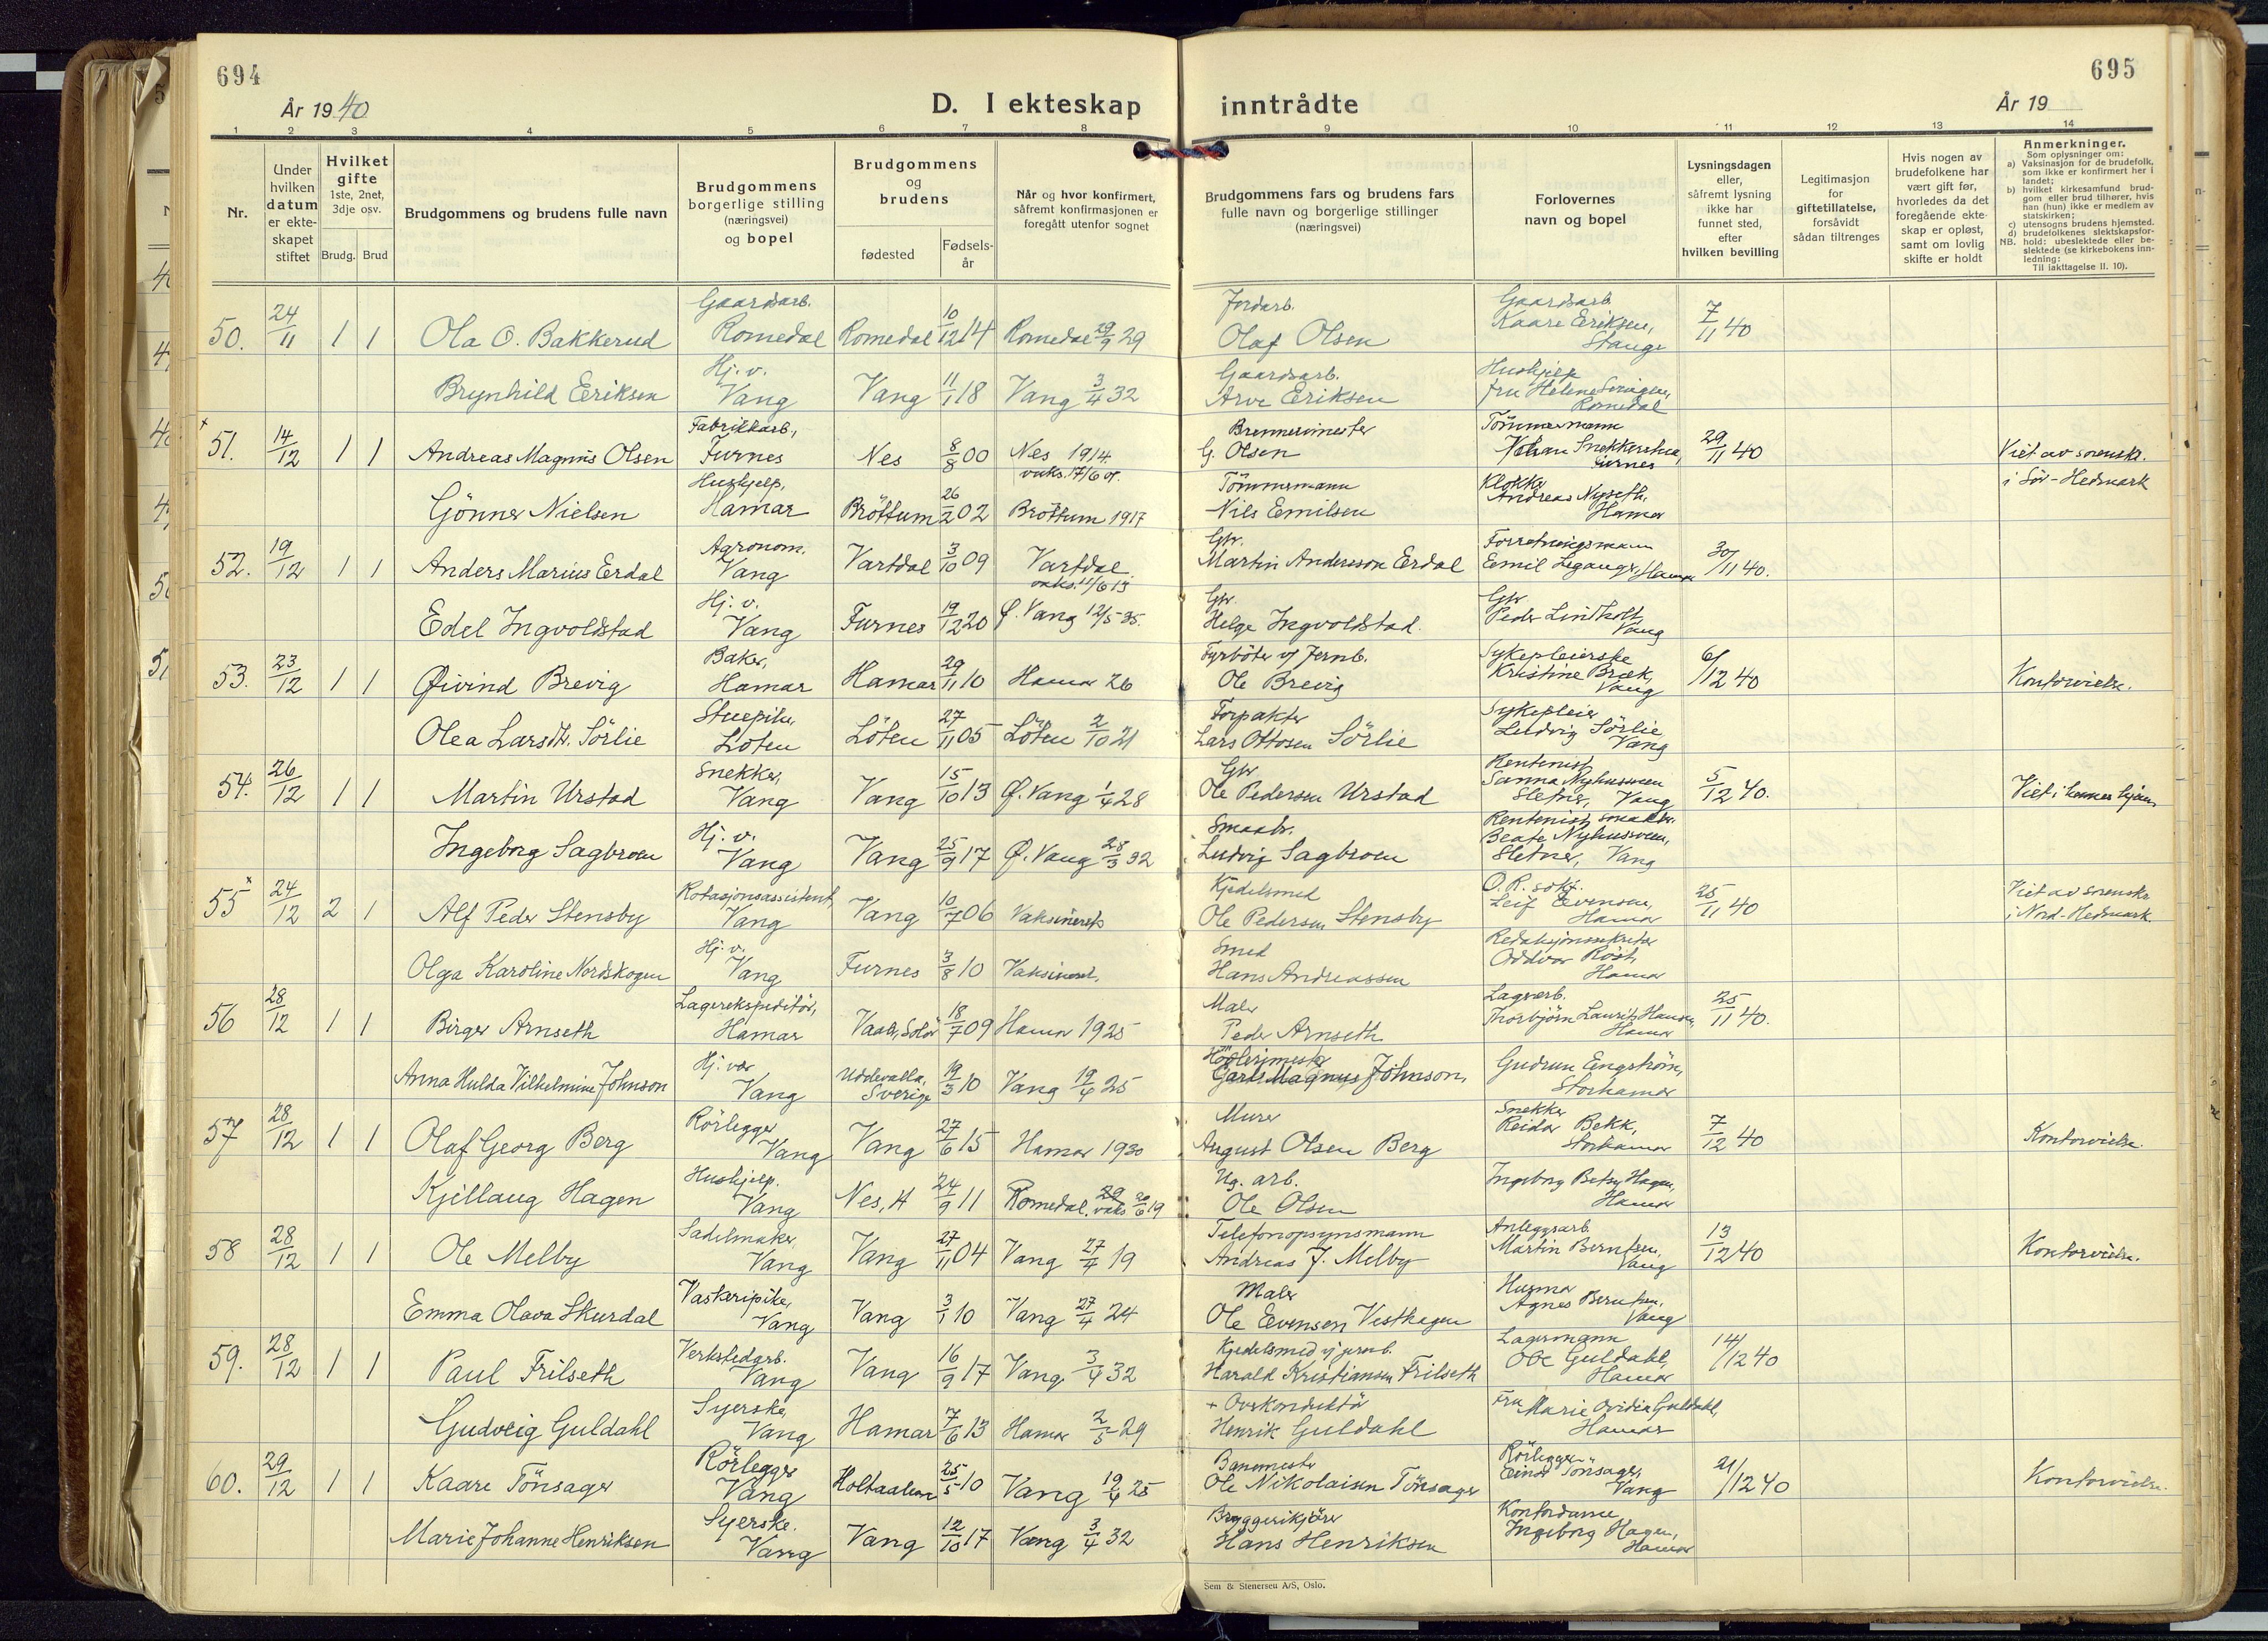 694
695
År 1940
D. I ekteskap
inntrådte
År 19
1 2 3 4 5 6 7 8 9 10 11 12 13 14
Nr.
Under hvilken datum er ekteskapet stiftet
Hvilket gifte 1ste, 2net, 3dje osv.
Brudg. Brud
Brudgommens og brudens fulle navn
Brudgommens borgerlige stilling (næringsvei) og bopel
Brudgommens og brudens
fødested
Fødselsår
Når og hvor konfirmert, såfremt konfirmasjonen er foregått utenfor sognet
Brudgommens fars og brudens fars fulle navn og borgerlige stillinger (næringsvei)
Forlovernes navn og bopel
Lysningsdagen eller, såfremt lysning ikke har funnet sted, efter hvilken bevilling
Legitimasjon for giftetillatelse, forsåvidt sådan tiltrenges
Hvis nogen av brudefolkene har vært gift før, hvorledes da det foregående ekteskap er opløst, samt om lovlig skifte er holdt
Anmerkninger.
Som oplysninger om:
a) Vaksinasjon for de brudefolk, som ikke er konfirmert her i landet;
b) hvilket kirkesamfund brudgom eller brud tilhører, hvis han (hun) ikke er medlem av statskirken;
c) utensogns brudens hjemsted.
d) brudefolkenes slektskapsforhold: ubeslektede eller beslektede (se kirkebokens innledning:
NB. Til iakttagelse II. 10).
50. 24/11 1 1 Ola O. Bakkerud Gaardsarb. Romedal Romedal 10/12 14 Romedal 29/9 29 Jordarb. Olaf Olsen Gaardsarb. Kaare Eriksen, Stange 7/11 40
Brynhild Eriksen Hj. v. Vang Vang 11/1 18 Vang 3/4 32 Gaardsarb. Arve Eriksen Hushjelp fru Helene Romedal
51. 14/12 1 1 Andreas Magnus Olsen Fabrikkarb., Furnes Nes 8/8 00 Nes 1914 vaks. 17/6 01. Brennerimester G. Olsen Tömmermann Johan Snekkerstua, Furnes 29/11 40 Viet av sorenskr. i Sør-Hedmark
Gönner Nielsen Hushjelp, Hamar Bröttum 26/2 02 Bröttum 1917 Tömmermann Nils Emilsen Klokker Andreas Nyseth, Hamar
52. 19/12 1 1 Anders Marius Erdal Agronom. Vang Vartdal 3/10 09 Vartdal vaks. 11/6 13 Gbr. Martin Andersson Erdal Forretningsmann Emil Leganger, Hamar 30/11 40.
Edel Ingvoldstad Hj. v. Vang Furnes 19/12 20 Ø. Vang 12/5-35. Gbr. Helge Ingvoldstad. Gbr. Peder Lindholt, Vang
53. 23/12 1 1 Øivind Brevig Baker, Hamar Hamar 29/11 10 Hamar 26 Fyrböter v/ Jernb. Ole Brevig Sykepleierske Kristine Bræk, Vang 6/12 40 Kontorvielse.
Olea Larsdtr. Sörlie Stuepike, Löten Löten 27/11 05 Löten 2/10 21 Forpakter Lars Ottosen Sörlie Sykepleier Ludvig Sörlie, Vang
54. 26/12 1 1 Martin Urstad Snekker, Vang Vang 15/10 13 Ø. Vang 1/4 28 Gbr Ole Pedersen Urstad Rentenist Sanna Nyhusveen Sletner, Vang 5/12 40. Viet i hennes hjem
Ingeborg Sagbroen Hj. v. Vang Vang 25/9 17 Ø. Vang 28/3 32 Smaabr. Ludvig Sagbroen Rentenist, smaabr. Beate Nyhusveen, Sletner, Vang
55 24/12 2 1 Alf Peder Stensby Rotasjonsassistent, Vang Vang 10/7 06 Vaksinert Kjedelsmed Ole Pedersen Stensby O. R. sakf. Leif Evensen, Hamar 25/11 40 Viet av sorenskr i Nord-Hedmark
Olga Karoline Nordskogen Hj. v. Vang Furnes 3/8 10 Vaksinert. Smed Hans Andreassen Redaksjonssekretær Oddvar Röst, Hamar
56 28/12 1 1 Birger Arnseth Lagerekspeditör, Hamar Vaaler, Solör 18/7 09 Hamar 1925 Maler Peder Arnseth Lagerarb. Thorbjörn Laurits Hansen, Hamar 25/11 40.
Anna Hulda Vilhelmine Johnson Hj. vær Vang Uddevalla, Sverige 19/3 10 Vang 19/4 25 Hövlerimester Carl Magnus Johnson, Gudrun Engström, Storhamar
57 28/12 1 1 Olaf Georg Berg Rörlegger Vang Vang 27/6 15 Hamar 1930 Murer August Olsen Berg Snekker Reidar Bekk, Storhamar 7/12 40 Kontorvielse.
Kjellaug Hagen Hushjelp. Vang Nes, H 24/9 11 Romedal, 29 vaks 20/6 19 Ug. arb. Ole Olsen Ingeborg Betsy Hagen, Hamar
58 28/12 1 1 Ole Melby Sadelmaker, Vang Vang 27/11 04 Vang 27/4 19 Telefonopsynsmann Andreas J. Melby Anleggsarb. Martin Berntsen, Vang 13/12 40 Kontorvielse.
Emma Olava Skurdal Vaskeripike, Vang Vang 3/1 10 Vang 27/4 24 Maler Ole Evensen Vesthagen Husmor Agnes Berntsen, Vang
59. 28/12 1 1 Paul Frilseth Verkstedarb. Vang Vang 16/9 17 Vang 3/4 32 Kjedelsmed v/ jernb. Harald Kristiansen Frilseth Lagermann Ole Guldahl, Hamar 14/12 40
Gudveig Guldahl Syerske, Vang Hamar 7/6 13 Hamar 2/5 29 + Overkonduktör Henrik Guldahl Fru Marie Ovidia Guldahl, Hamar
60. 29/12 1 1 Kaare Tönsager Rörlegger Vang Holtaalen 25/5 10 Vang 19/4 25 Banemester Ole Nikolaisen Tönsager Rörlegger Einar Tönsager, Vang 21/12 40 Kontorvielse.
Marie Johanne Henriksen Syerske. Vang Vang 12/10 17 Vang 3/4 32 Bryggerikjörer Hans Henriksen Kontordame Ingeborg Hagen, Hamar
Sem & Stenersen A/S, Oslo.